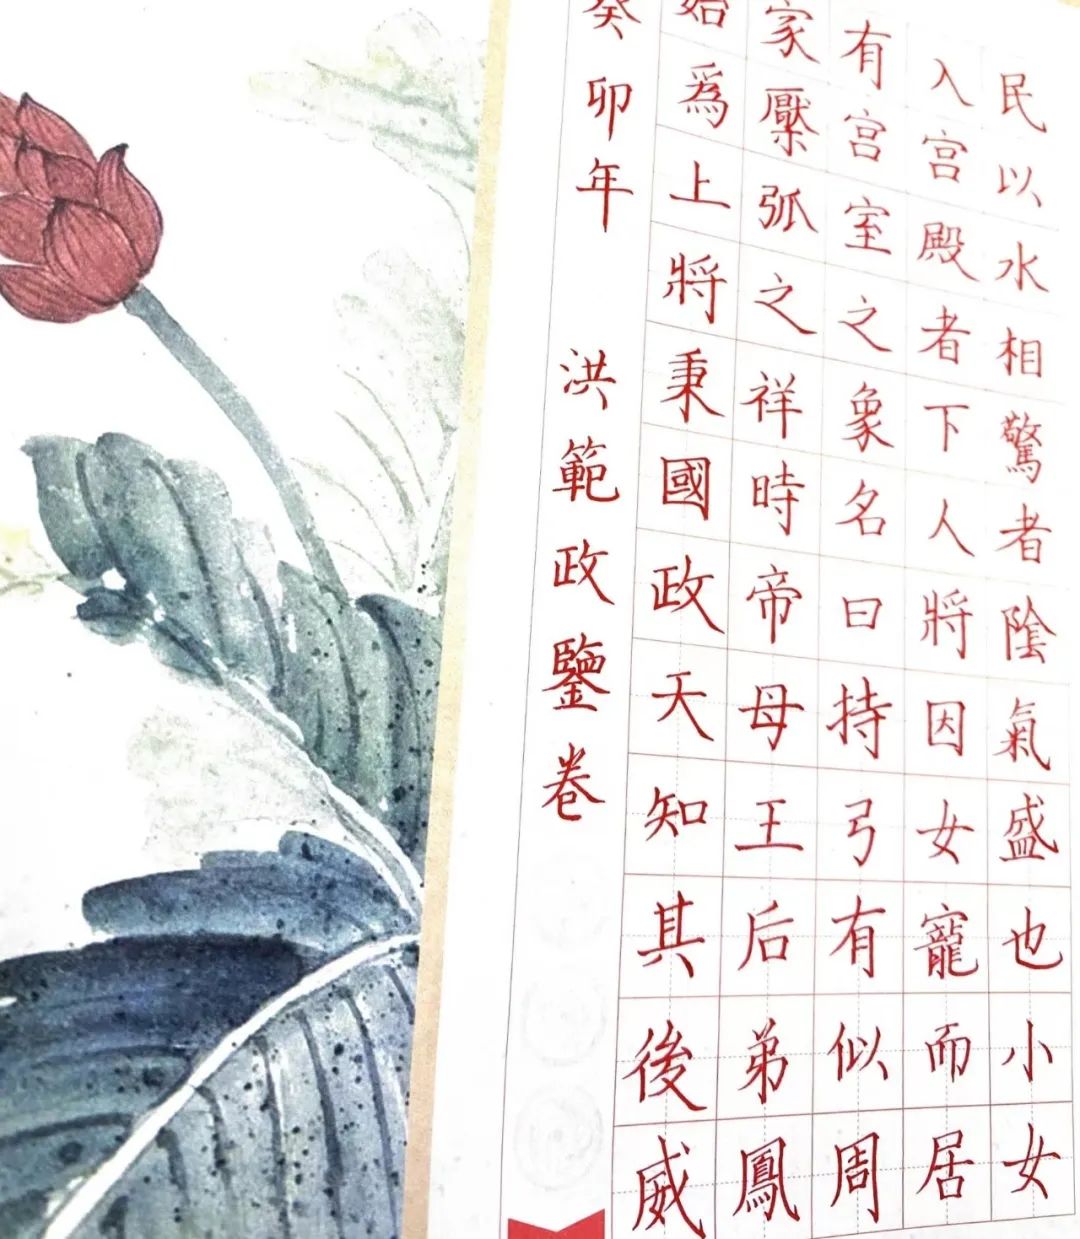 民以水相驚者陰氣盛也小女
入宫殿者下人將因女寵而居
有宫室之象名曰持弓有似周
家檿弧之祥時帝母王后弟鳳
始爲上將秉國政天知其後威
癸卯年 洪範政鑒卷